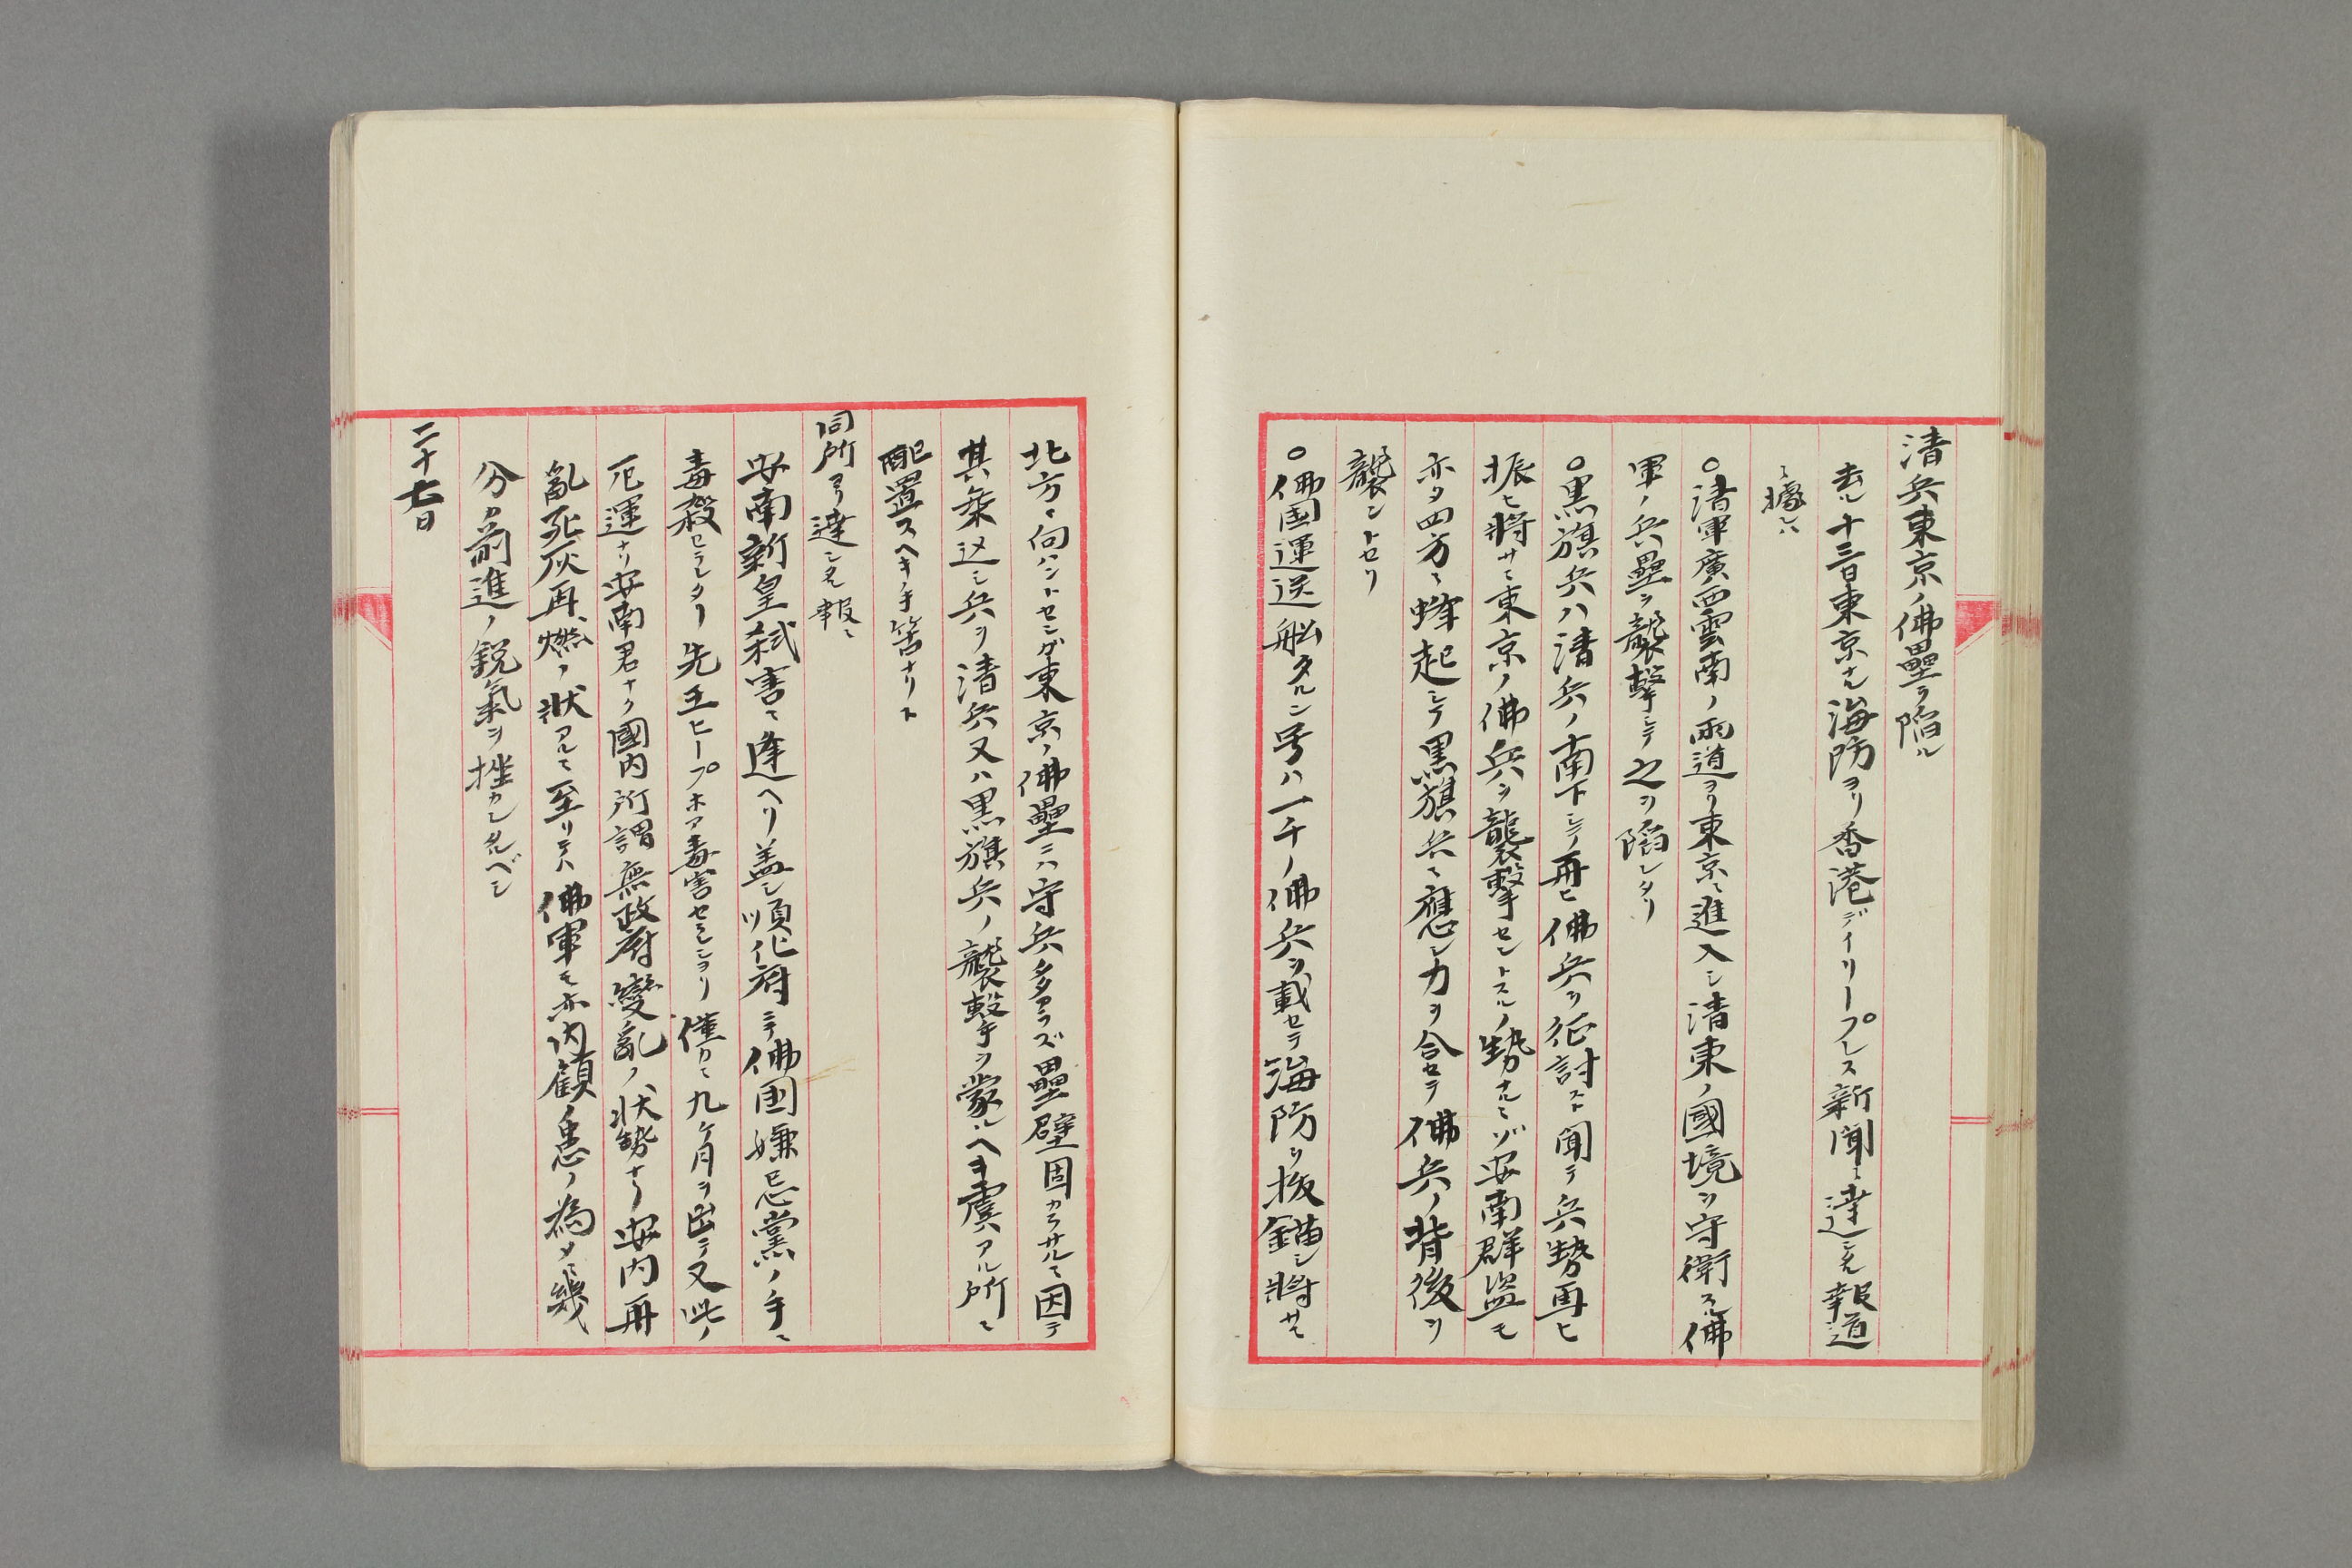 清兵東京ノ佛壘ヲ陥ル
去ル十三日東京ナル海防ヨリ香港デイリープレス新聞ニ達シタル報道
ニ據レハ
○清軍廣西雲南ノ両道ヨリ東京ニ進入シ清東ノ國境ヲ守衛スル佛
軍ノ兵壘ヲ襲撃シテ之ヲ陥レタリ
○黒旗兵ハ清兵ノ南下シテ再ヒ佛兵ヲ征討スト聞テ兵勢再ヒ
振ヒ將サニ東京ノ佛兵ヲ襲撃セントスルノ勢ナルニゾ安南群盗モ
亦タ四方ニ蜂起シテ黒旗兵ニ應シ力ヲ合セテ佛兵ノ背後ヲ
襲ントセリ
○佛国運送船タルン号ハ一千ノ佛兵ヲ載セテ海防ヲ抜錨シ將サニ
北方ニ向ハントセシガ東京ノ佛壘ニハ守兵多カラズ壘壁固カラサルニ因テ
其乗込シ兵ヲ清兵又ハ黒旗兵ノ襲撃ヲ蒙ルヘキ虞アル所ニ
配置スヘキ手筈ナリト
同所ヨリ達シタル報ニ
安南新皇弑害ニ逢ヘリ盖シ順化府ニテ佛国嫌忌党ノ手ニ
毒殺セラレタリ先王ヒープホア毒害セラレシヨリ僅カニ九ケ月ヲ出テ又此ノ
厄運ナリ安南君ナク國内所謂無政府變乱ノ状勢ナリ安内再
亂死灰再燃ノ状アルニ至リテハ佛軍モ亦内顧ノ患ノ為メニ幾
分カ前進ノ鋭氣ヲ挫カレタルベシ
二十七日